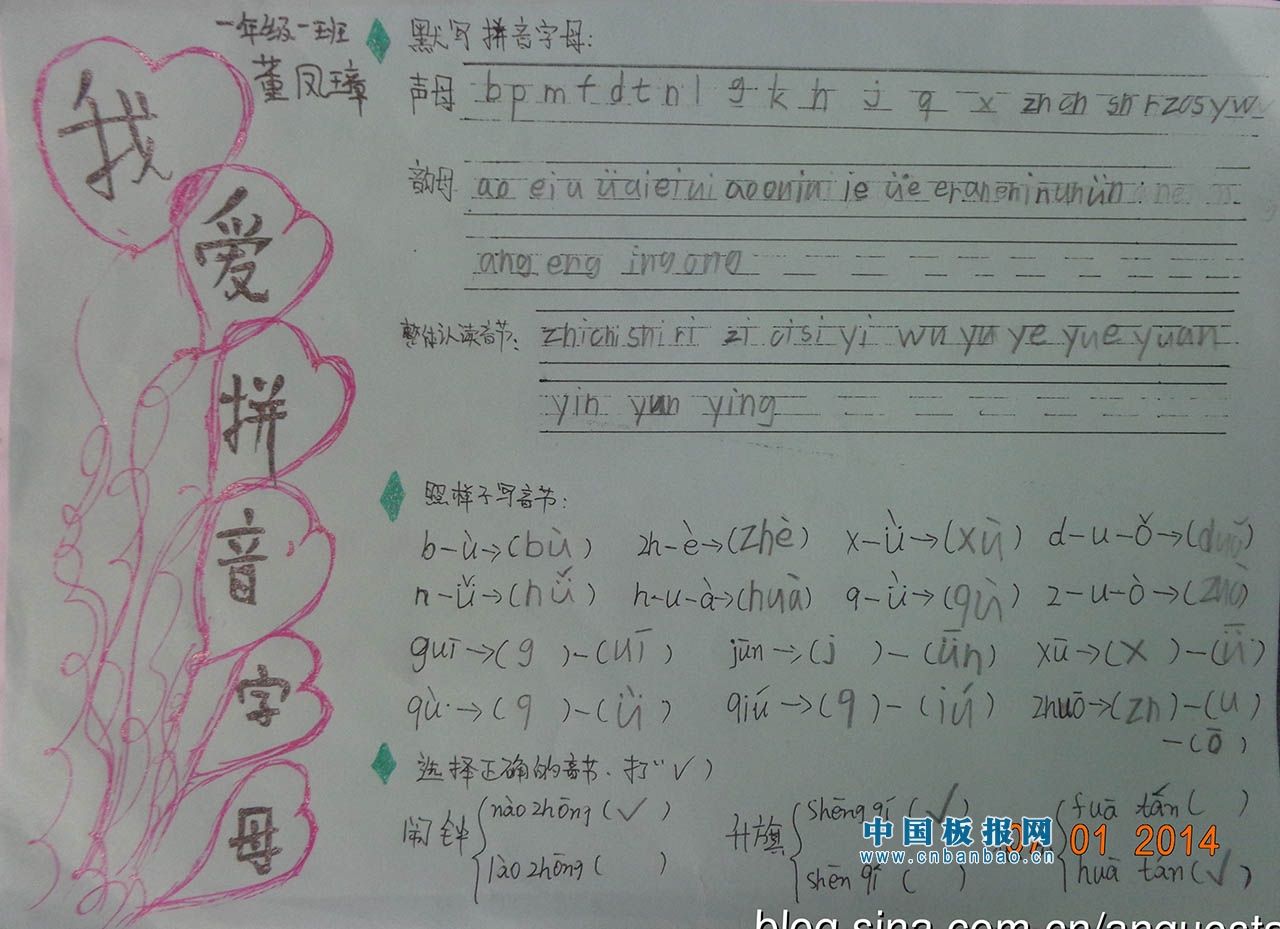 我
爱
拼
音
字
母
一年级一班
董凤璋
默写拼音字母:
声母 b p m f d t n l g k h j q x zh ch sh r z c s y w
韵母 a o e i u ü ai ei ui ao ou iu ie üe er an en in un ün
ang eng ing ong
整体认读音节: zhi chi shi ri zi ci si yi wu yu ye yue yuan
yin yun ying
照样子写音节:
b-ù→(bù) zh-è→(zhè) x-ǜ→(xù) d-u-ǒ→(duǒ)
n-ǚ→(nǚ) h-u-à→(huà) q-ǜ→(qù) z-u-ò→(zuò)
guī→(g)-(uī) jūn→(j)-(ǖn) xū→(x)-(ǖ)
qù→(q)-(ǜ) qiú→(q)-(iú) zhuō→(zh)-(u)
-(ō)
选择正确的音节,打“√)
闹钟 nào zhōng(√) 升旗 shēng qí(√) fuā tán( )
lào zhōng( ) shēn qí( ) huā tán(√)
中国板报网
www.cnbanbao.cn
01 2014